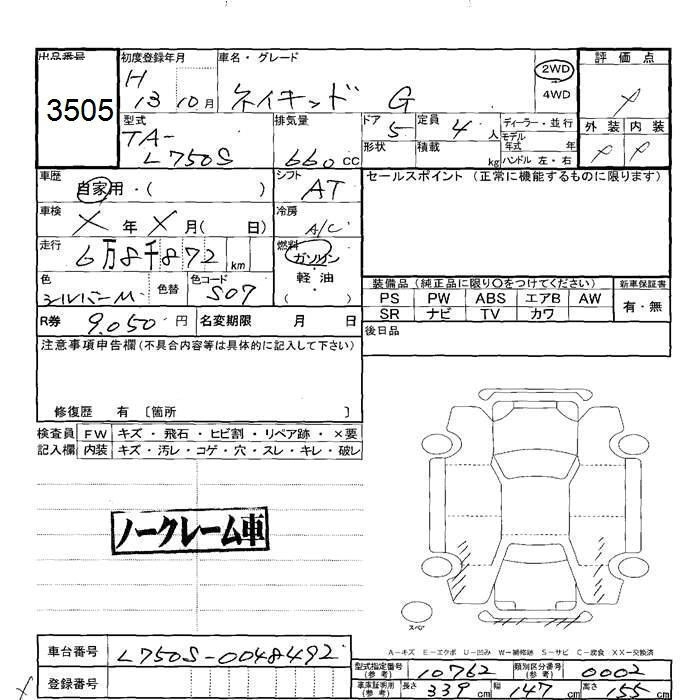 出品番号 初度登録年月 車名・グレード 2WD 評価点
3505 H 13 10月 ネイキッド G 4WD
型式 排気量 ドア 定員 ディーラー・並行 外装 内装
TA- 5 4人 モデル年式 年
L750S 660cc 形状 積載 kg ハンドル 左・右
車歴 シフト セールスポイント (正常に機能するものに限ります)
自家用・( ) AT
車検 冷房
× 年 × 月( 日) A/C
走行 燃料
6万8千872km ガソリン
色 色替 色コード 軽油
シルバーM S07 ・( )
装備品 (純正品に限り○をつけてください) 新車保証書
PS PW ABS エアB AW 有・無
SR ナビ TV カワ
R券 9,050円 名変期限 月 日
後日品
注意事項申告欄(不具合内容等は具体的に記入して下さい)
修復歴 有 〔箇所 〕
検査員 FW キズ・飛石・ヒビ割・リペア跡・×要
記入欄 内装 キズ・汚レ・コゲ・穴・スレ・キレ・破レ
ノークレーム車
スペア
A－キズ E－エクボ U－凹み W－補修跡 S－サビ C－腐食 XX－交換済
車台番号 L750S-0048492
型式指定番号(参考) 10762 類別区分番号(参考) 0002
登録番号
車庫証明用(参考) 長さ 339cm 幅 147cm 高さ 155cm